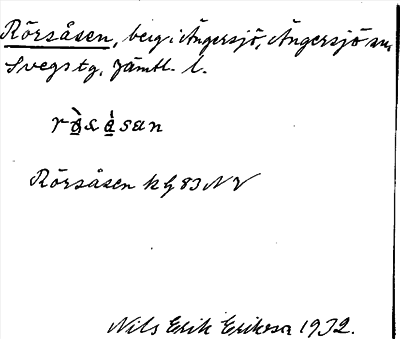 Rörsåsen, berg i Ängersjö, Ängersjö sn,
Svegs tg, Jämtl. l.
Rörsåsen kg 83 NV
Nils Erik Eriksson 1932.